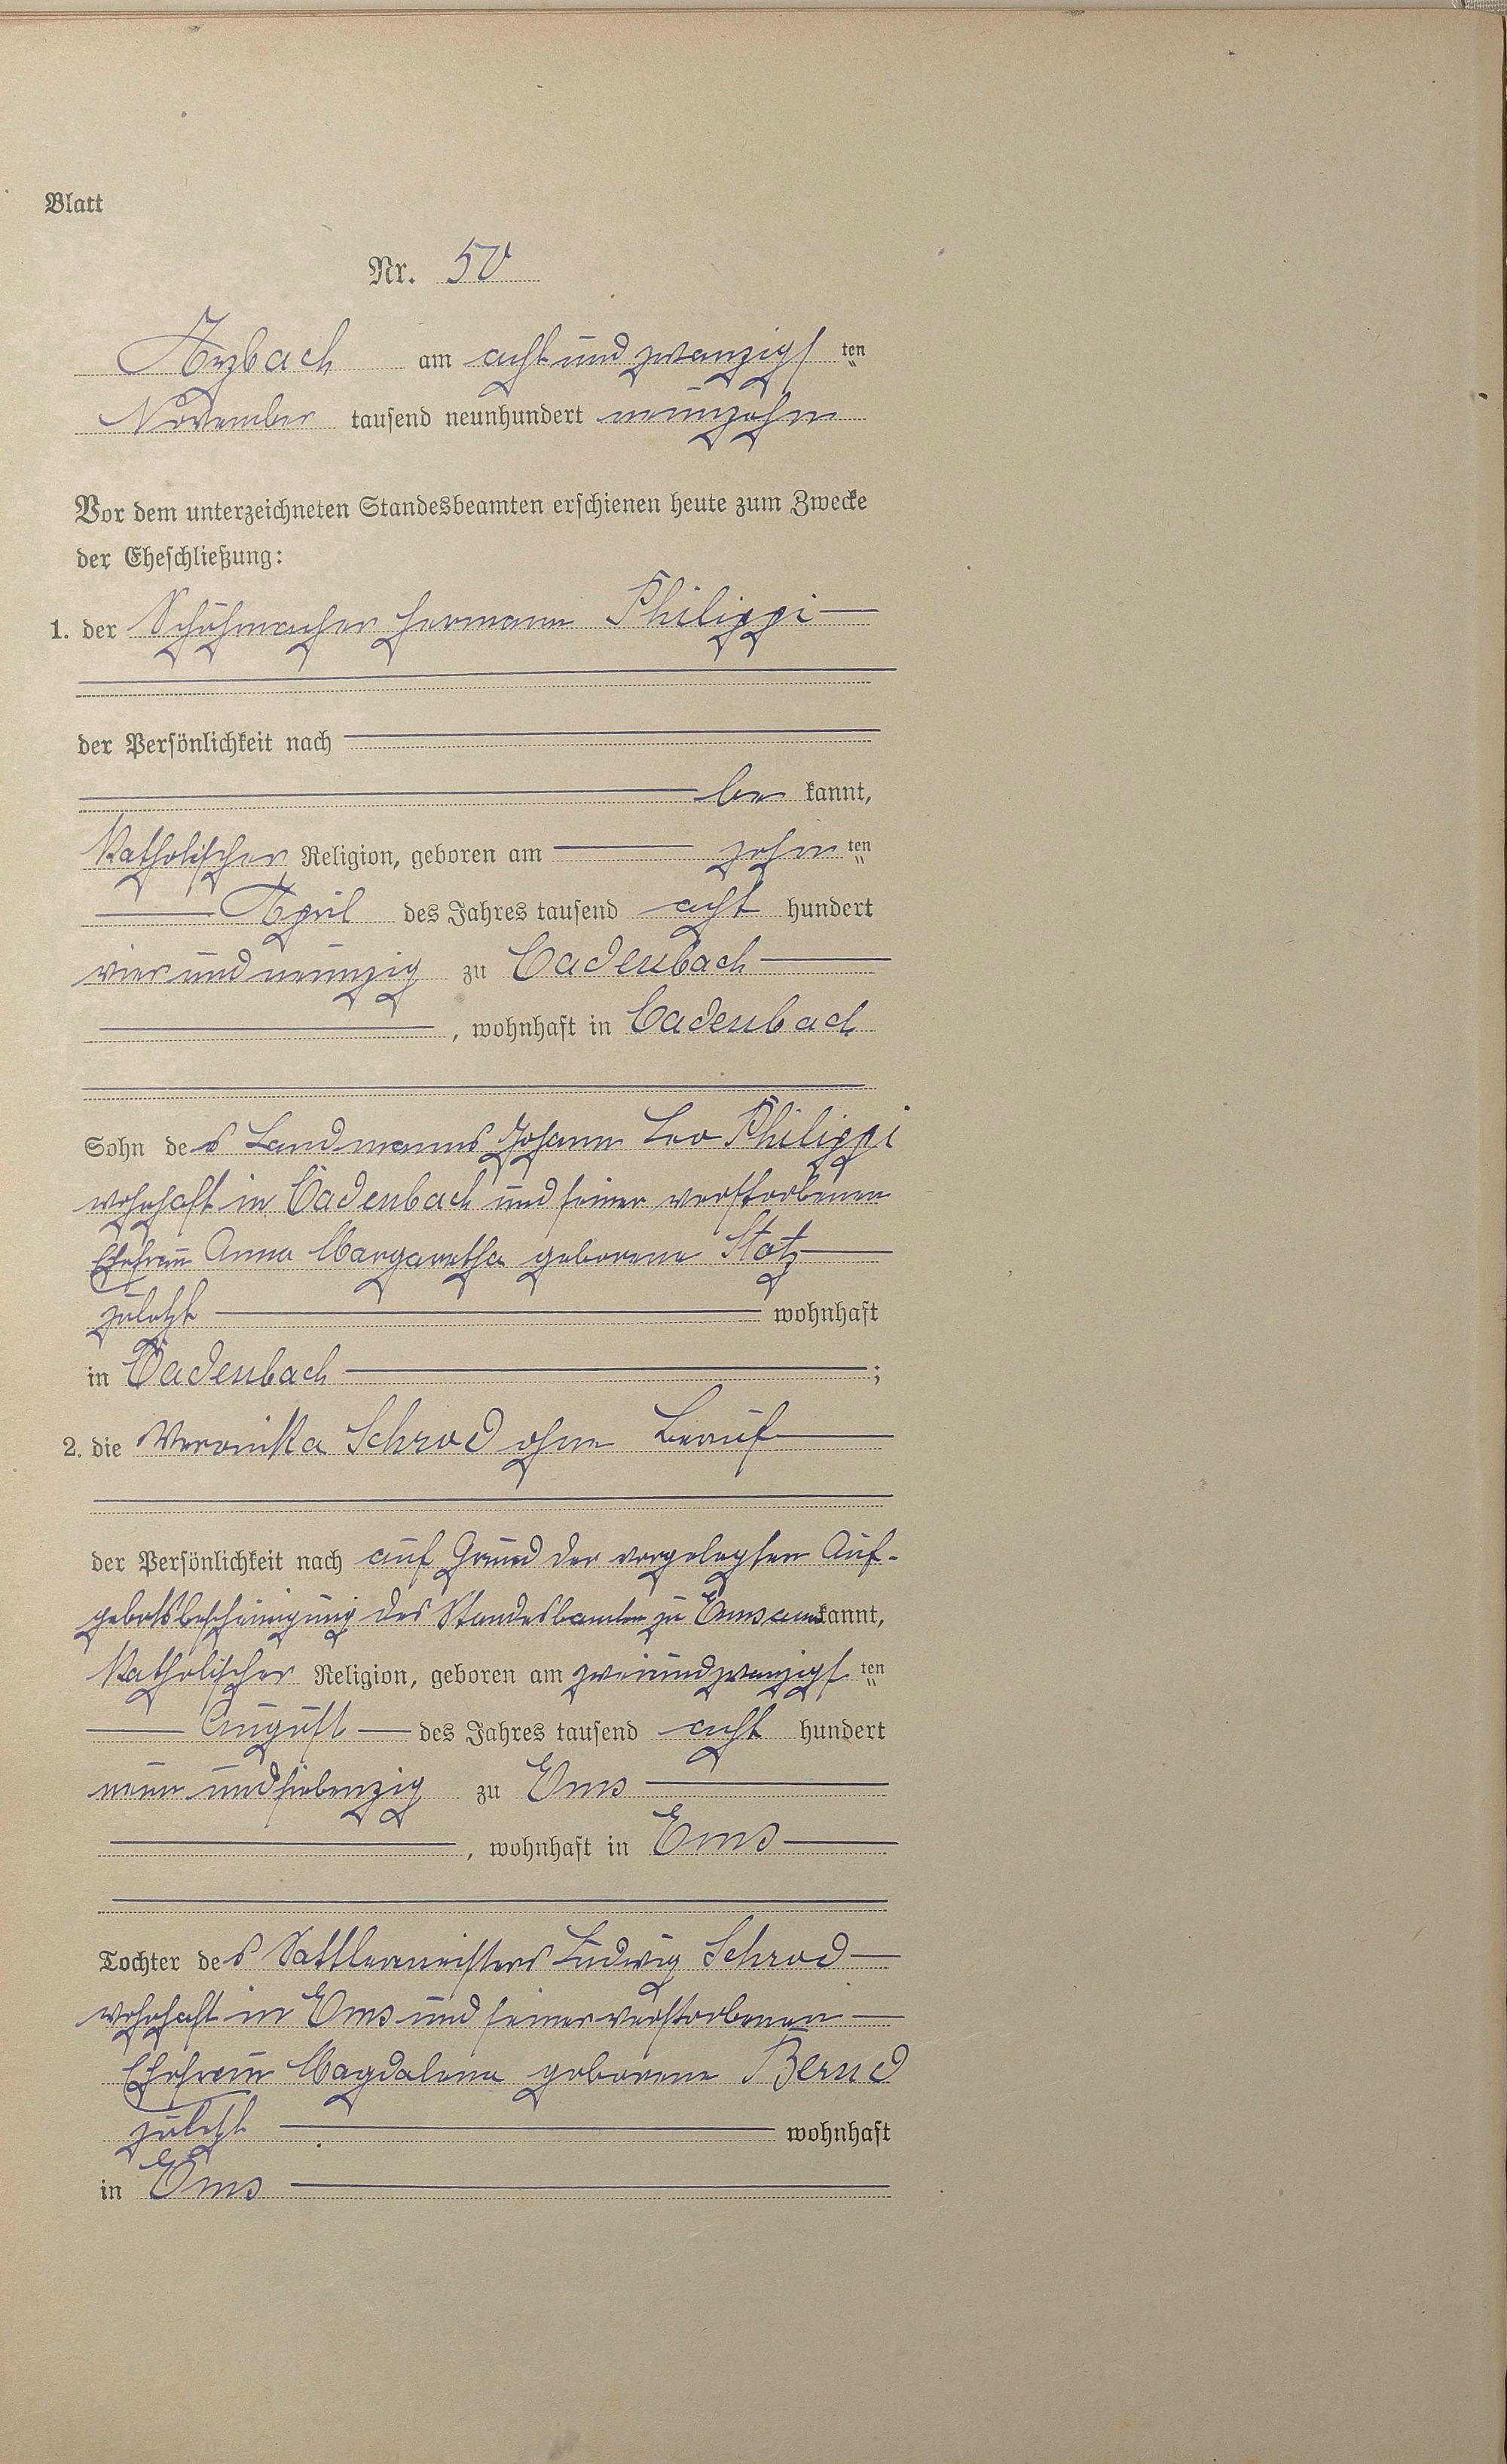 Blatt
Nr. 50
Arzbach am acht und zwanzigsten
November tausend neunhundert neunzehn
Vor dem unterzeichneten Standesbeamten erschienen heute zum Zwecke
der Eheschließung:
1. der Schuhmacher Hermann Philippi
der Persönlichkeit nach
be kannt,
Katholischer Religion, geboren am zehn ten
April des Jahres tausend acht hundert
vier und neunzig zu Cadenbach
, wohnhaft in Cadenbach
Sohn des Landmanns Johann Leo Philippi
wohnhaft in Cadenbach und seiner verstorbenen
Ehefrau Anna Margaretha geborene Stotz
zuletzt wohnhaft
in Cadenbach ;
2. die Veronika Schrod ohne Beruf
der Persönlichkeit nach auf Grund der vorgelegten Auf-
gebotsbescheinigung des Standesbeamten zu Ems anerkannt,
Katholischer Religion, geboren am zweiundzwanzigsten
August des Jahres tausend acht hundert
neun und siebenzig zu Ems
, wohnhaft in Ems
Tochter des Sattlermeisters Ludwig Schrod
wohnhaft in Ems und seiner verstorbenen
Ehefrau Magdalena geborene Bernd
zuletzt wohnhaft
in Ems